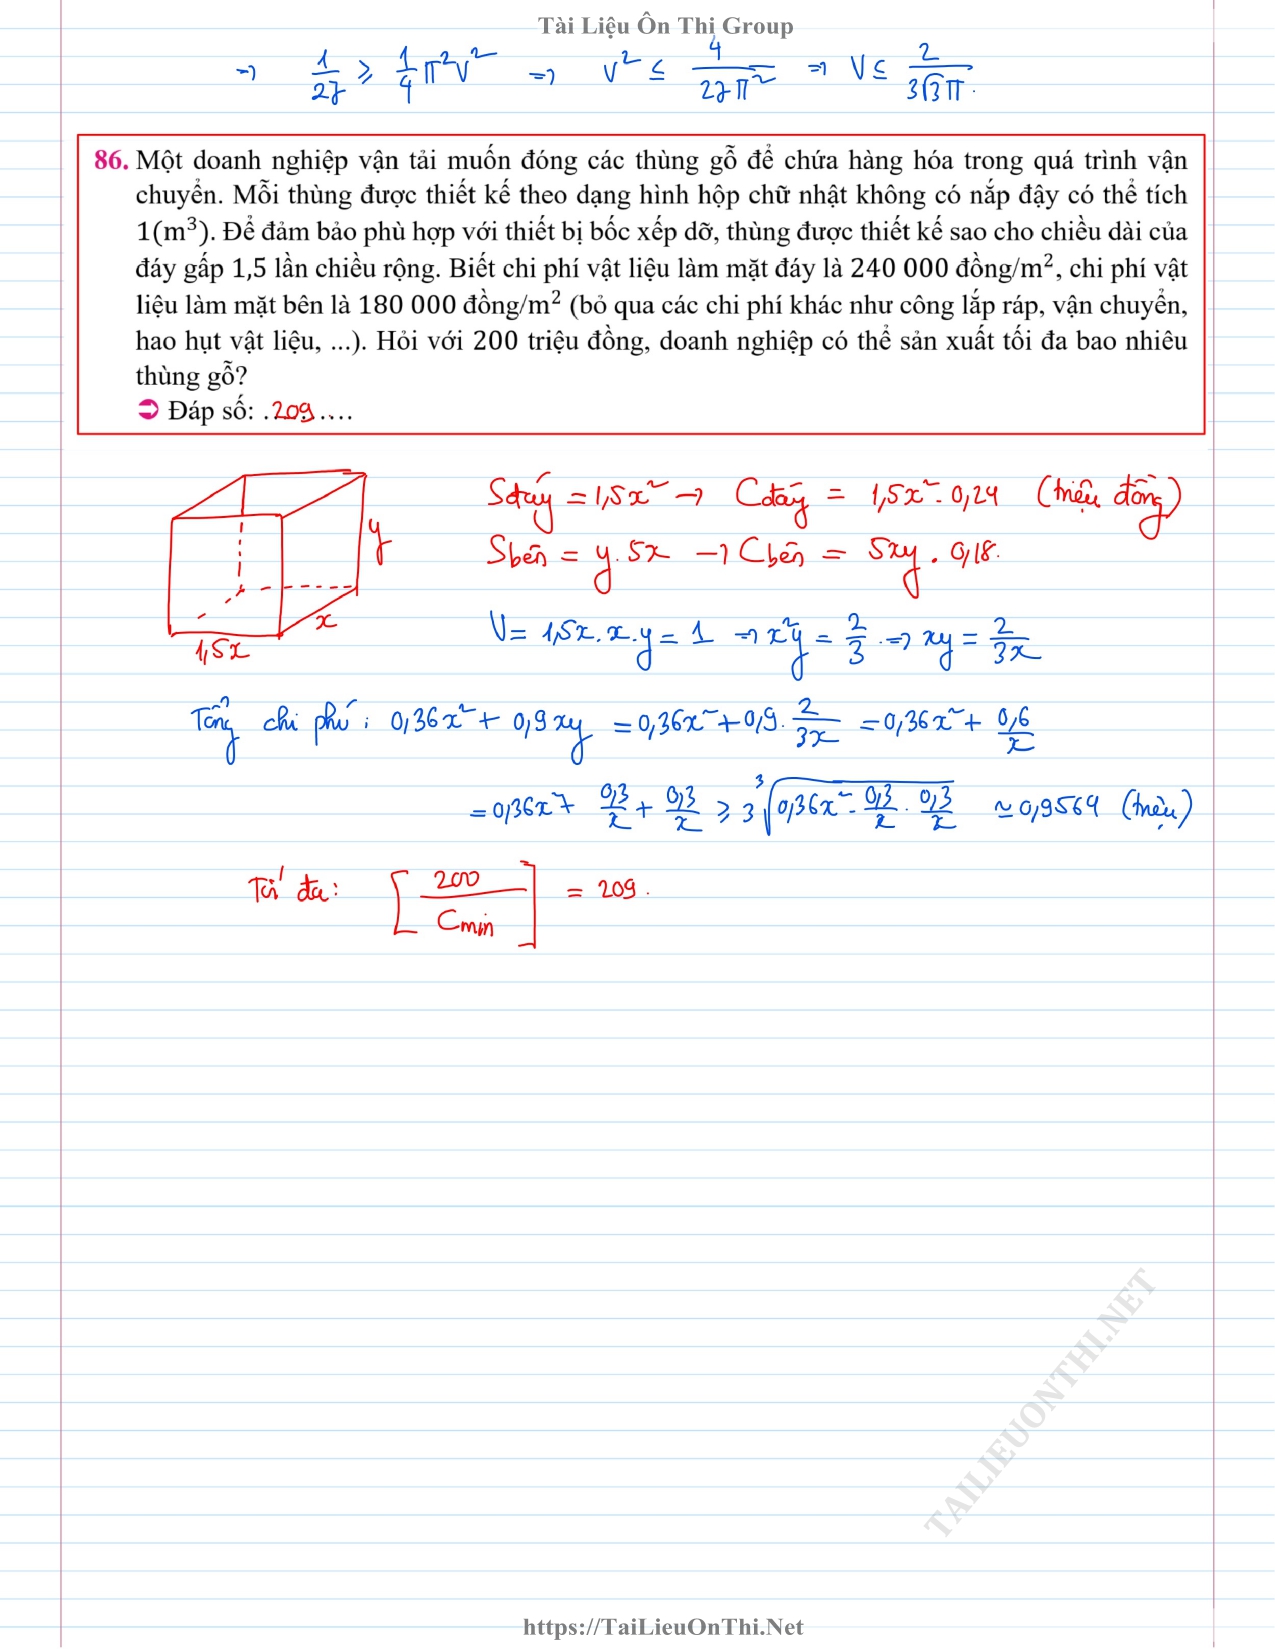 Tài Liệu Ôn Thi Group
⇒ 1/27 ⩾ 1/4 π²V² ⇒ V² ≤ 4/(27π²) ⇒ V ≤ 2/(3√3π).
86. Một doanh nghiệp vận tải muốn đóng các thùng gỗ để chứa hàng hóa trong quá trình vận
chuyển. Mỗi thùng được thiết kế theo dạng hình hộp chữ nhật không có nắp đậy có thể tích
1(m³). Để đảm bảo phù hợp với thiết bị bốc xếp dỡ, thùng được thiết kế sao cho chiều dài của
đáy gấp 1,5 lần chiều rộng. Biết chi phí vật liệu làm mặt đáy là 240 000 đồng/m², chi phí vật
liệu làm mặt bên là 180 000 đồng/m² (bỏ qua các chi phí khác như công lắp ráp, vận chuyển,
hao hụt vật liệu, ...). Hỏi với 200 triệu đồng, doanh nghiệp có thể sản xuất tối đa bao nhiêu
thùng gỗ?
➲ Đáp số: .209....
y
x
1,5x
Sđáy = 1,5x² → Cđáy = 1,5x². 0,24 (triệu đồng)
Sbên = y. 5x → Cbên = 5xy . 0,18.
V = 1,5x. x. y = 1 ⇒ x²y = 2/3 . ⇒ xy = 2/(3x)
Tổng chi phí: 0,36x² + 0,9xy = 0,36x² + 0,9. 2/(3x) = 0,36x² + 0,6/x
= 0,36x² + 0,3/x + 0,3/x ⩾ 3 ∛(0,36x² . 0,3/x . 0,3/x) ≃ 0,9564 (triệu)
Tối đa: [200/Cmin] = 209.
TAILIEUONTHI.NET
https://TaiLieuOnThi.Net